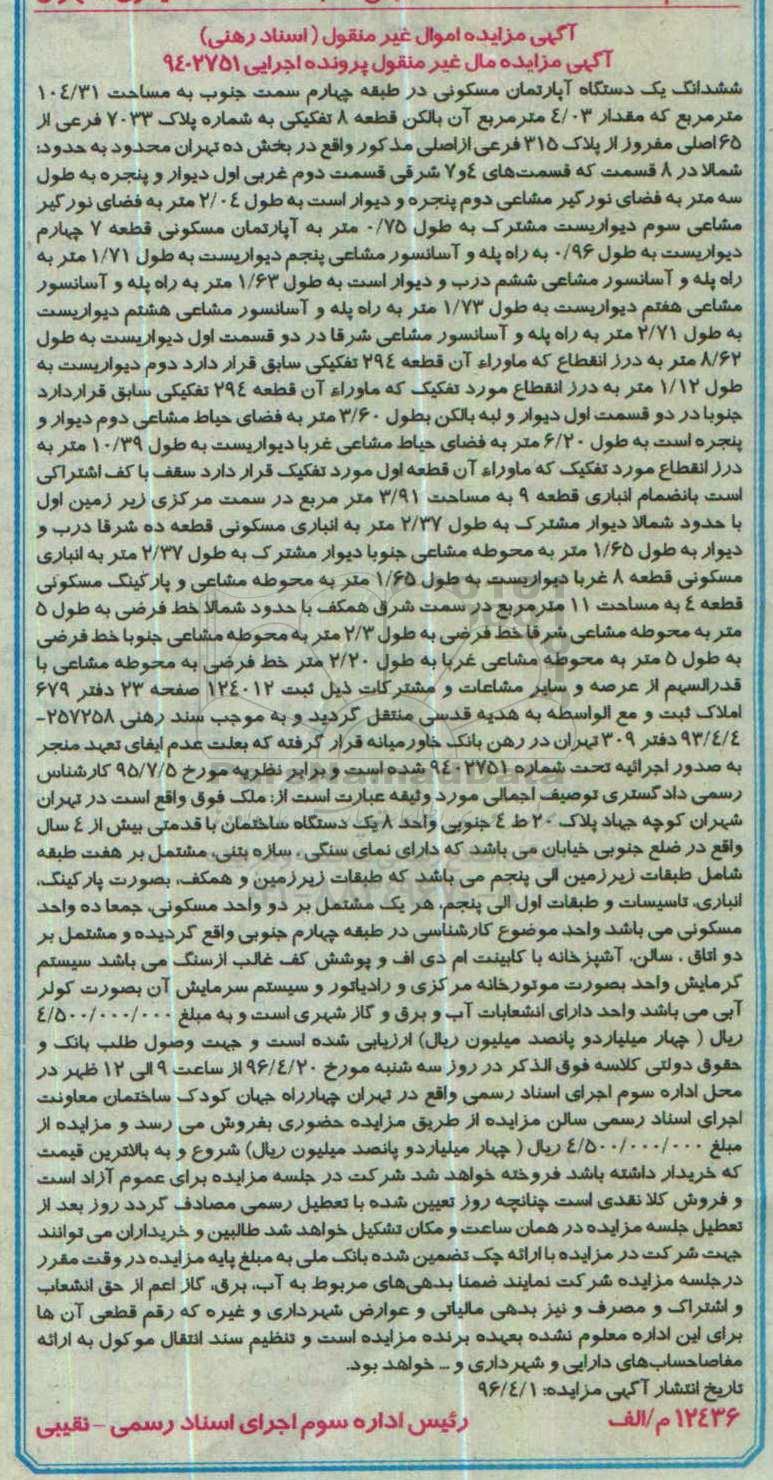 آگهی مزایده اموال غیر منقول (اسناد رهنی)
آگهی مزایده مال غیر منقول پرونده اجرایی ۹۴۰۲۷۵۱
ششدانگ یک دستگاه آپارتمان مسکونی در طبقه چهارم سمت جنوب به مساحت ۱۰۴/۳۱
مترمربع که مقدار ۴/۰۳ مترمربع آن بالکن قطعه ۸ تفکیکی به شماره پلاک ۷۰۳۳ فرعی از
۶۵ اصلی مفروز از پلاک ۳۱۵ فرعی ازاصلی مذکور واقع در بخش ده تهران محدود به حدود:
شمالا در ۸ قسمت که قسمت‌های ۴و۷ شرقی قسمت دوم غربی اول دیوار و پنجره به طول
سه متر به فضای نورگیر مشاعی دوم پنجره و دیوار است به طول ۲/۰۴ متر به فضای نورگیر
مشاعی سوم دیواریست مشترک به طول ۰/۷۵ متر به آپارتمان مسکونی قطعه ۷ چهارم
دیواریست به طول ۰/۹۶ به راه پله و آسانسور مشاعی پنجم دیواریست به طول ۱/۷۱ متر به
راه پله و آسانسور مشاعی ششم درب و دیوار است به طول ۱/۶۳ متر به راه پله و آسانسور
مشاعی هفتم دیواریست به طول ۱/۷۳ متر به راه پله و آسانسور مشاعی هشتم دیواریست
به طول ۲/۷۱ متر به راه پله و آسانسور مشاعی شرقا در دو قسمت اول دیواریست به طول
۸/۶۲ متر به درز انقطاع که ماوراء آن قطعه ۲۹۴ تفکیکی سابق قرار دارد دوم دیواریست به
طول ۱/۱۲ متر به درز انقطاع مورد تفکیک که ماوراء آن قطعه ۲۹۴ تفکیکی سابق قراردارد
جنوبا در دو قسمت اول دیوار و لبه بالکن بطول ۳/۶۰ متر به فضای حیاط مشاعی دوم دیوار و
پنجره است به طول ۶/۲۰ متر به فضای حیاط مشاعی غربا دیواریست به طول ۱۰/۳۹ متر به
درز انقطاع مورد تفکیک که ماوراء آن قطعه اول مورد تفکیک قرار دارد سقف با کف اشتراکی
است بانضمام انباری قطعه ۹ به مساحت ۳/۹۱ متر مربع در سمت مرکزی زیر زمین اول
با حدود شمالا دیوار مشترک به طول ۲/۳۷ متر به انباری مسکونی قطعه ده شرقا درب و
دیوار به طول ۱/۶۵ متر به محوطه مشاعی جنوبا دیوار مشترک به طول ۲/۳۷ متر به انباری
مسکونی قطعه ۸ غربا دیواریست به طول ۱/۶۵ متر به محوطه مشاعی و پارکینگ مسکونی
قطعه ۴ به مساحت ۱۱ مترمربع در سمت شرق همکف با حدود شمالا خط فرضی به طول ۵
متر به محوطه مشاعی شرقا خط فرضی به طول ۲/۳ متر به محوطه مشاعی جنوبا خط فرضی
به طول ۵ متر به محوطه مشاعی غربا به طول ۲/۲۰ متر خط فرضی به محوطه مشاعی با
قدرالسهم از عرصه و سایر مشاعات و مشترکات ذیل ثبت ۱۲۴۰۱۲ صفحه ۲۳ دفتر ۶۷۹
املاک ثبت و مع الواسطه به هدیه قدسی منتقل گردید و به موجب سند رهنی ۲۵۷۲۵۸-
۹۳/۴/۴ دفتر ۳۰۹ تهران در رهن بانک خاورمیانه قرار گرفته که بعلت عدم ایفای تعهد منجر
به صدور اجرائیه تحت شماره ۹۴۰۲۷۵۱ شده است و برابر نظریه مورخ ۹۵/۷/۵ کارشناس
رسمی دادگستری توصیف اجمالی مورد وثیقه عبارت است از: ملک فوق واقع است در تهران
شهران کوچه جهاد پلاک ۲۰ ط ۴ جنوبی واحد ۸ یک دستگاه ساختمان با قدمتی بیش از ۴ سال
واقع در ضلع جنوبی خیابان می باشد که دارای نمای سنگی ، سازه بتنی، مشتمل بر هفت طبقه
شامل طبقات زیرزمین الی پنجم می باشد که طبقات زیرزمین و همکف، بصورت پارکینگ،
انباری، تاسیسات و طبقات اول الی پنجم، هر یک مشتمل بر دو واحد مسکونی، جمعا ده واحد
مسکونی می باشد واحد موضوع کارشناسی در طبقه چهارم جنوبی واقع گردیده و مشتمل بر
دو اتاق ، سالن، آشپزخانه با کابینت ام دی اف و پوشش کف غالب ازسنگ می باشد سیستم
گرمایش واحد بصورت موتورخانه مرکزی و رادیاتور و سیستم سرمایش آن بصورت کولر
آبی می باشد واحد دارای انشعابات آب و برق و گاز شهری است و به مبلغ ۴/۵۰۰/۰۰۰/۰۰۰
ریال ( چهار میلیاردو پانصد میلیون ریال) ارزیابی شده است و جهت وصول طلب بانک و
حقوق دولتی کلاسه فوق الذکر در روز سه شنبه مورخ ۹۶/۴/۲۰ از ساعت ۹ الی ۱۲ ظهر در
محل اداره سوم اجرای اسناد رسمی واقع در تهران چهارراه جهان کودک ساختمان معاونت
اجرای اسناد رسمی سالن مزایده از طریق مزایده حضوری بفروش می رسد و مزایده از
مبلغ ۴/۵۰۰/۰۰۰/۰۰۰ ریال ( چهار میلیاردو پانصد میلیون ریال) شروع و به بالاترین قیمت
که خریدار داشته باشد فروخته خواهد شد شرکت در جلسه مزایده برای عموم آزاد است
و فروش کلا نقدی است چنانچه روز تعیین شده با تعطیل رسمی مصادف گردد روز بعد از
تعطیل جلسه مزایده در همان ساعت و مکان تشکیل خواهد شد طالبین و خریداران می توانند
جهت شرکت در مزایده با ارائه چک تضمین شده بانک ملی به مبلغ پایه مزایده در وقت مقرر
درجلسه مزایده شرکت نمایند ضمنا بدهی‌های مربوط به آب، برق، گاز اعم از حق انشعاب
و اشتراک و مصرف و نیز بدهی مالیاتی و عوارض شهرداری و غیره که رقم قطعی آن ها
برای این اداره معلوم نشده بعهده برنده مزایده است و تنظیم سند انتقال موکول به ارائه
مفاصاحساب‌های دارایی و شهرداری و ... خواهد بود.
تاریخ انتشار آگهی مزایده: ۹۶/۴/۱
۱۲۴۳۶ م/الف رئیس اداره سوم اجرای اسناد رسمی – نقیبی